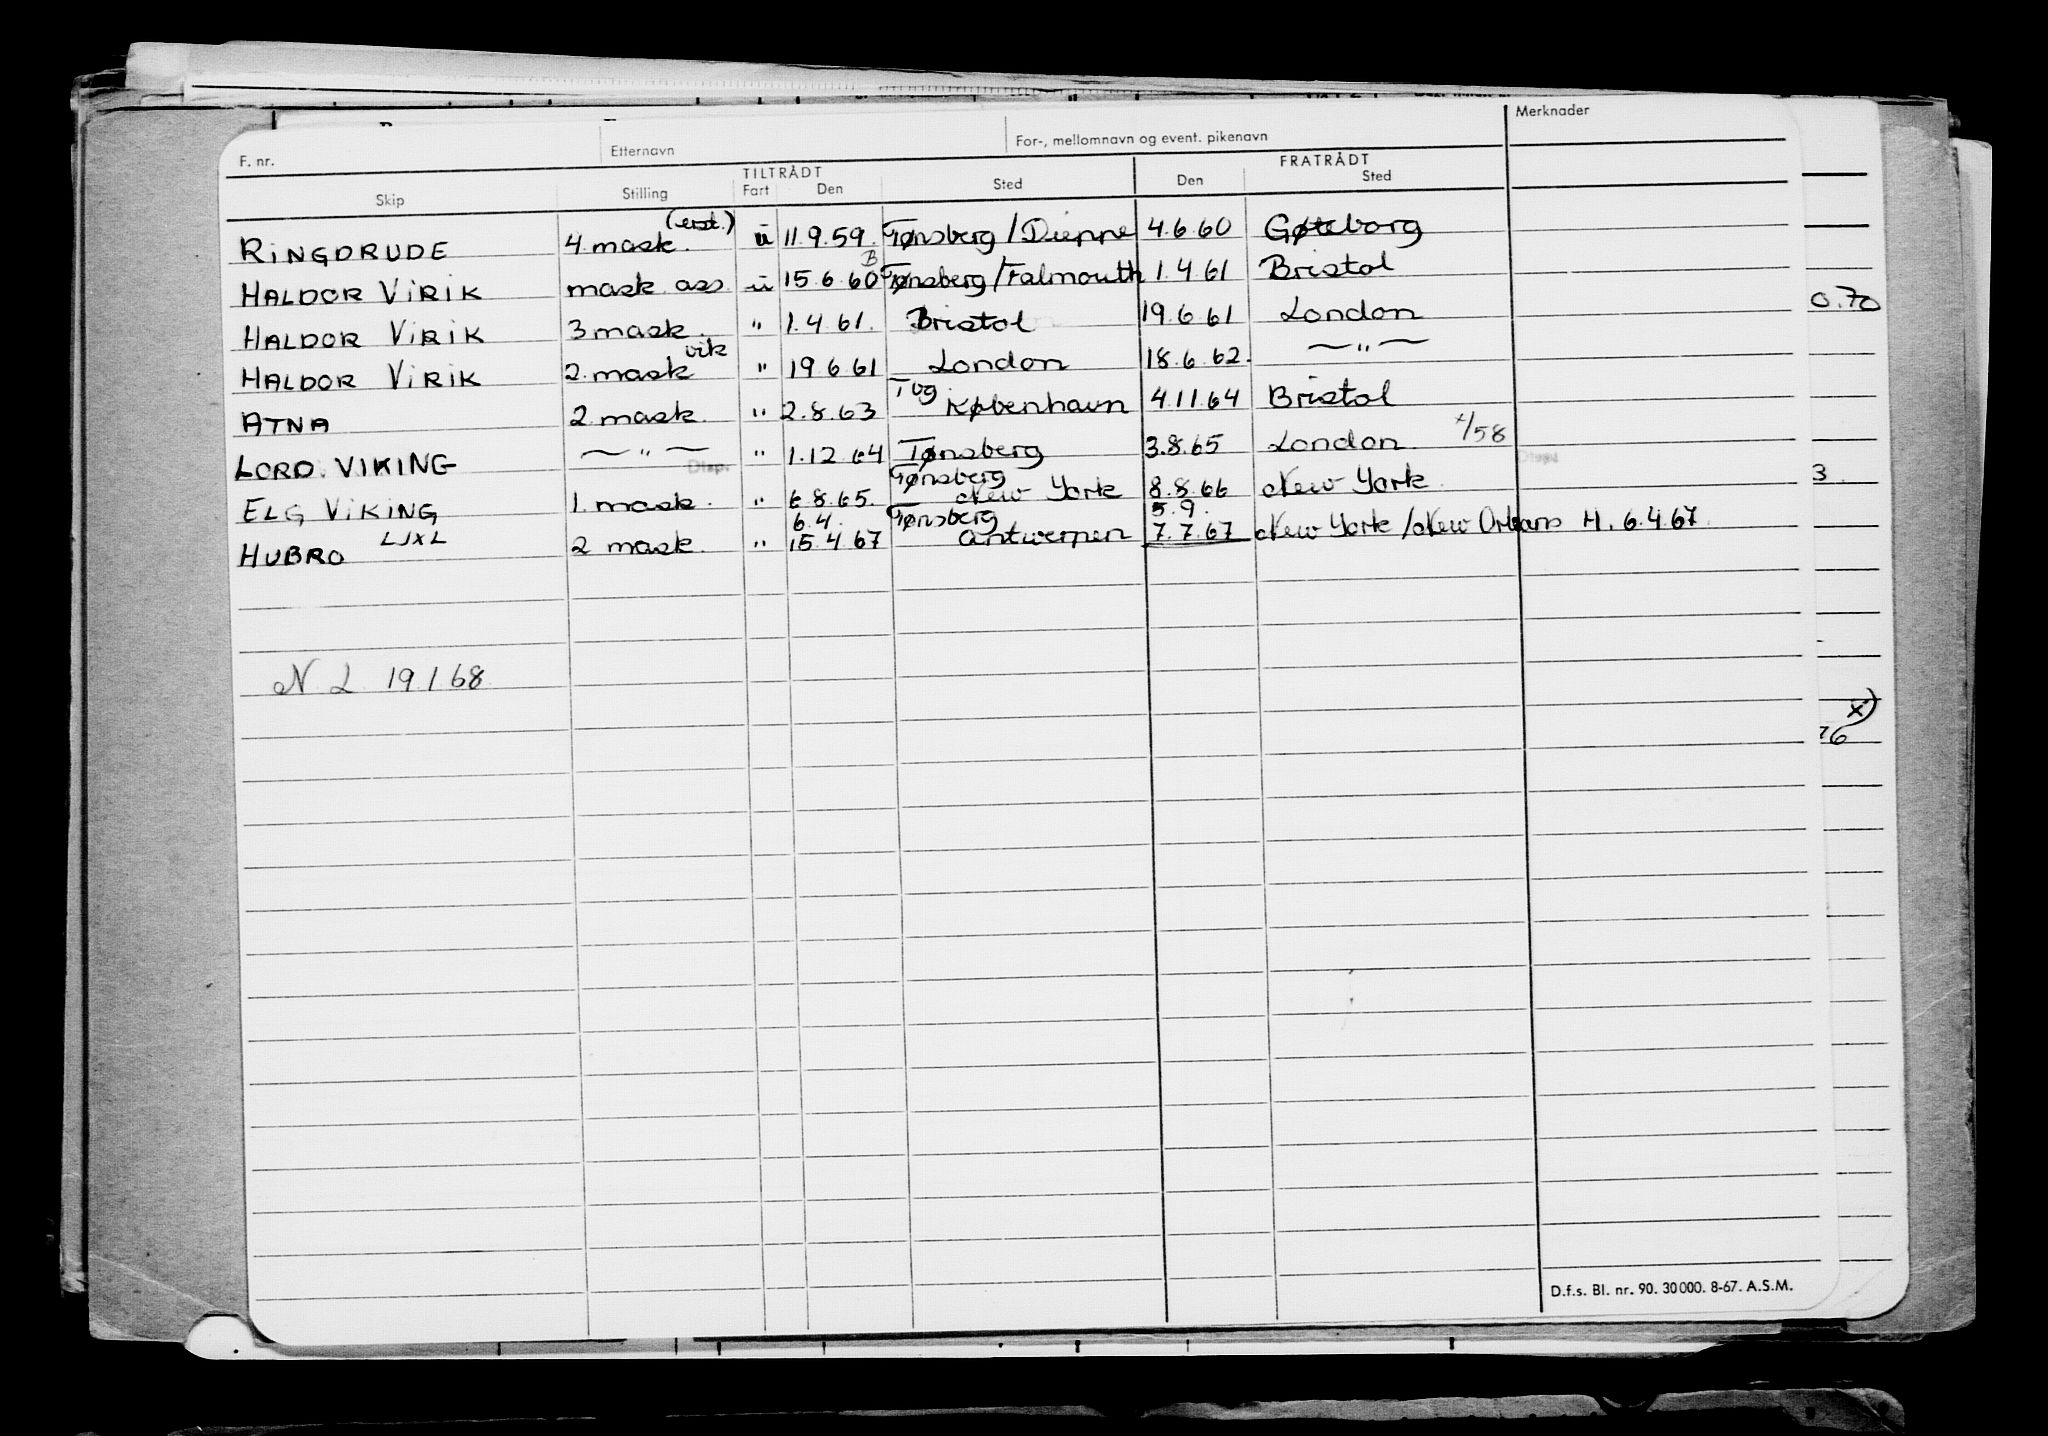 Merknader
F. nr. Etternavn For-, mellomnavn og event. pikenavn
TILTRÅDT FRATRÅDT
Skip Stilling Fart Den Sted Den Sted
RINGDRUDE 4. mask. (erst.) ü 11.9.59. Tønsberg/Dieppe 4.6.60 Gøteborg
HALDOR VIRIK mask. ass ü 15.6.60 B Tønsberg/Falmouth 1.4.61 Bristol
HALDOR VIRIK 3 mask. " 1.4.61. Bristol 19.6.61 London
HALDOR VIRIK 2. mask vik " 19.6.61 London 18.6.62. — " —
ATNA 2. mask. " 2.8.63 Tbg København 4.11.64 Bristol
LORD VIKING — " — " 1.12.64 Tønsberg 3.8.65 London x/58
Disp.
ELG VIKING 1. mask. " 6.8.65. Tønsberg New York 8.8.66 New York.
HUBRO LJXL 2 mask. " 6.4. 15.4.67 Tønsberg Antwerpen 5.9. 7.7.67 New York/New Orleans H. 6.4.67.
N L 19.1.68
0.70
3.
x)
76
D.f.s. Bl. nr. 90. 30 000. 8-67. A.S.M.